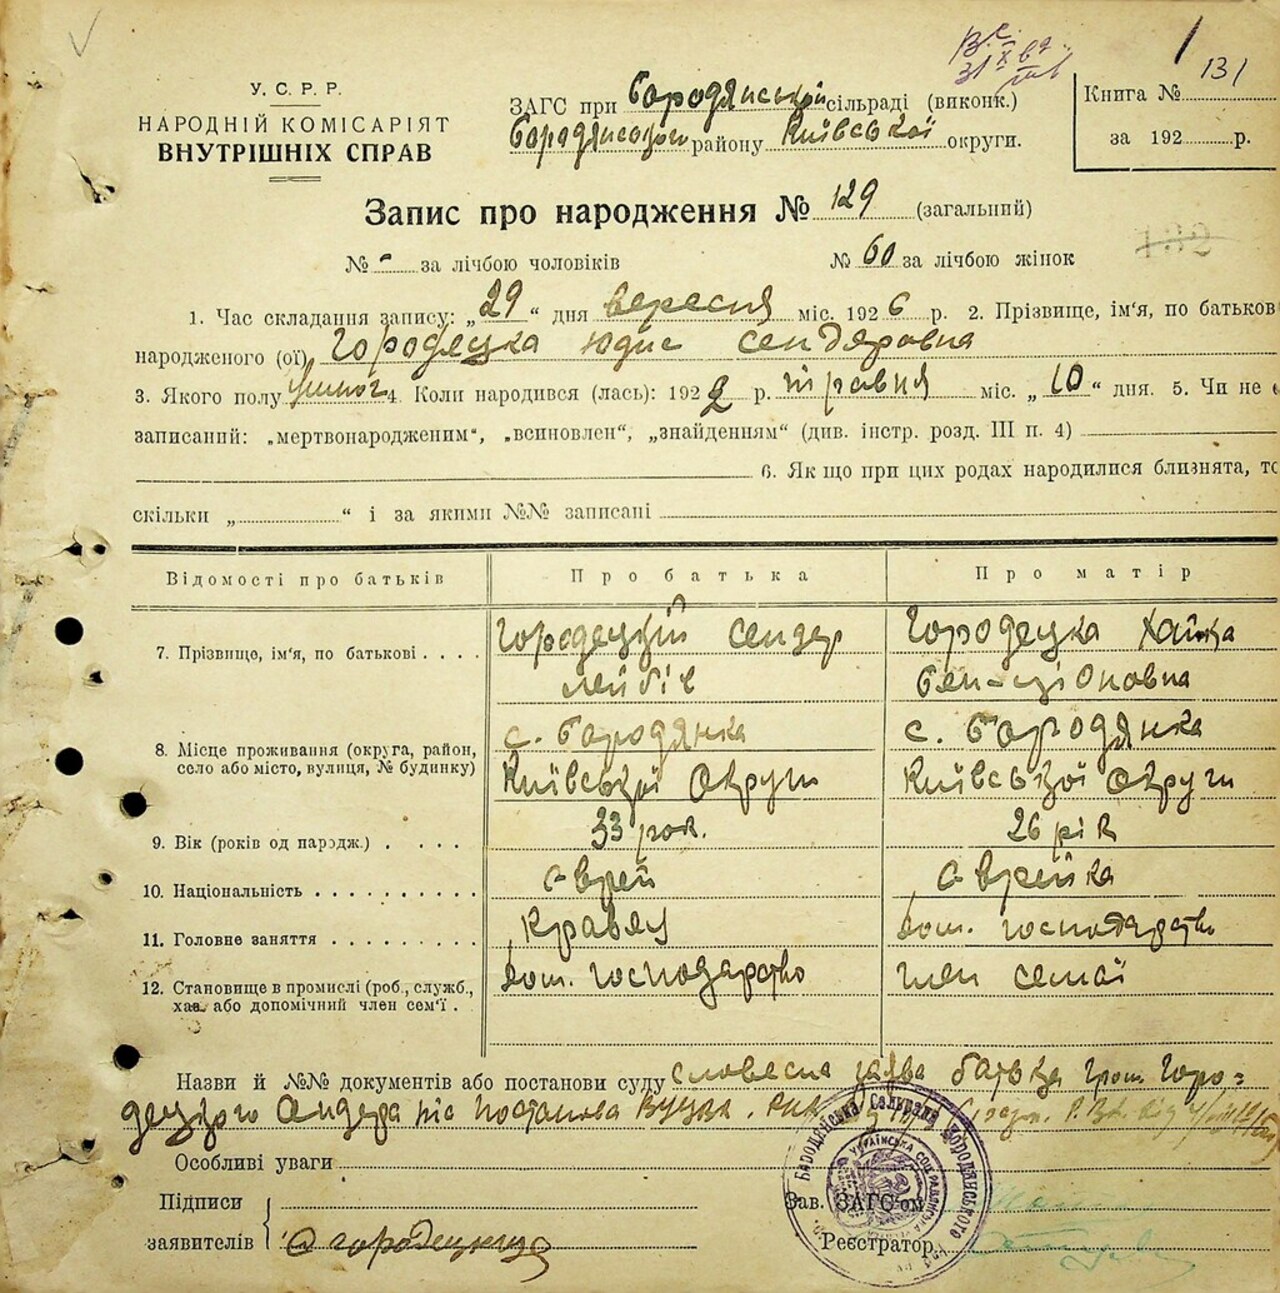 131
У. С. Р. Р.
НАРОДНІЙ КОМІСАРІЯТ
ВНУТРІШНІХ СПРАВ
ЗАГС при Бородянській сільраді (виконк.)
Бородянського району Київської округи.
Книга №
за 192 р.
Запис про народження № 129 (загальний)
№ - за лічбою чоловіків № 60 за лічбою жінок
1. Час складання запису: „29“ дня вересня міс. 1926 р. 2. Прізвище, ім'я, по батьков
народженого (ої) Городецка Юдис Сендеровна
3. Якого полу 4. Коли народився (лась): 1922 р. травня міс. „10“ дня. 5. Чи не є
записаний: „мертвонародженим“, „всиновлен“, „знайденням“ (див. інстр. розд. III п. 4)
6. Якщо при цих родах народилися близнята, то
скільки „ “ і за якими №№ записані
Відомості про батьків Про батька Про матір
7. Прізвище, ім'я, по батькові . . . . Городецкій Сендер Городецка Хайка
Лейбів Бен-ціоновна
8. Місце проживання (округа, район, село або місто, вулиця, № будинку) с. Бородянка с. Бородянка
Київської округи Київської округи
9. Вік (років од народж.) . . . . 33 рок. 26 рік
10. Національність . . . . . . . . . . Єврей Єврейка
11. Головне заняття . . . . . . . . . Кравец дом. господарство
12. Становище в промислі (роб., служб., хаз. або допомічний член сем'ї . дом. господарство член семьї
Назви й №№ документів або постанови суду словесна заява батька гром. Горо-
децкого Сендера постанова ВУЦВК
Особливі уваги
Підписи
заявителів С Городецкий
Зав. ЗАГС'ом
Реєстратор